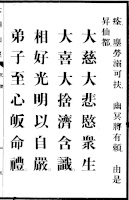 痊 塵勞溺可扶 幽冥將有賴 由是
昇仙都
大慈大悲愍衆生
大喜大捨濟含識
相好光明以自嚴
弟子至心皈命禮